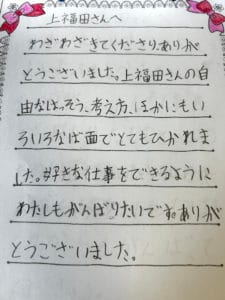 上福田さんへ
わざわざきてくださり、ありが
とうございました。上福田さんの自
由なはっそう、考え方、ほかにもい
ろいろなば面でとてもひかれま
した。好きな仕事をできるように
わたしもがんばりたいです。ありが
とうございました。